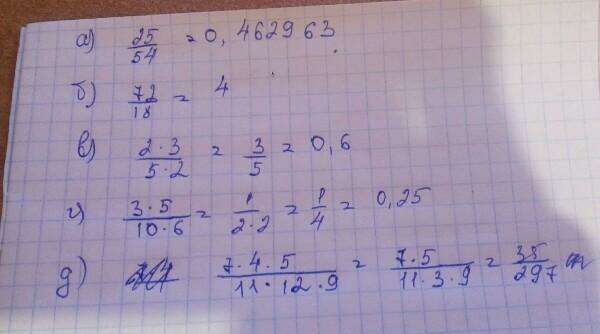 а) 25/54 = 0,462963
б) 72/18 = 4
в) 2·3/5·2 = 3/5 = 0,6
г) 3·5/10·6 = 1/2·2 = 1/4 = 0,25
д) 7·4·5/11·12·9 = 7·5/11·3·9 = 35/297